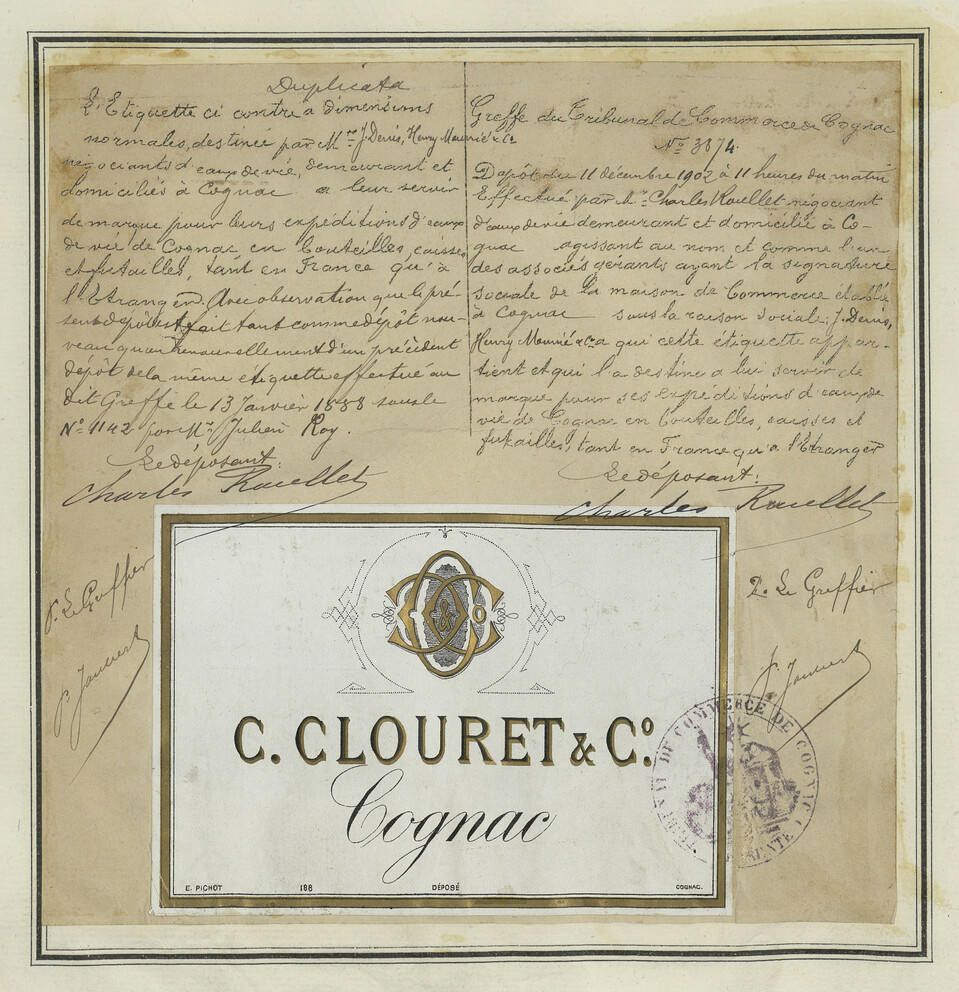 Duplicata
L'Etiquette ci contre a dimensions
normales, destinée par Mrs J. Denis, Henry Mounié & Cie
négociants d'eaux de vie, demeurant et
domiciliés à Cognac a leur servir
de marque pour leurs expéditions d'eaux
de vie de Cognac en bouteilles, caisses
et futailles, tant en France qu'à
l'Etranger. Avec observation que le pré-
sent dépôt est fait tant comme dépôt nou-
veau qu'en renouvellement d'un précédent
dépôt de la même étiquette effectué au
dit Greffe le 13 Janvier 1888 sous le
No 1142 par Mr Julien Roy.
Le déposant:
Charles Rouellet
P. Le Greffier
P. Jaunert
Greffe du Tribunal de Commerce de Cognac
No 3374.
Dépôt du 11 décembre 1902 à 11 heures du matin
Effectué par Mr Charles Rouellet négociant
d'eaux de vie demeurant et domicilié à Co-
gnac agissant au nom et comme l'un
des associés gérants ayant la signature
sociale de la maison de Commerce établie
à Cognac sous la raison social: J. Denis,
Henry Mounié & Co a qui cette étiquette appar-
tient et qui l'a destine a lui servir de
marque pour ses expéditions d'eaux de
vie de Cognac en bouteilles, caisses et
futailles, tant en France qu'a l'Etranger
Le déposant:
Charles Rouellet
P. Le Greffier
P. Jaunert
C & Co
C. CLOURET & Co.
Cognac
E. PICHOT
186
DÉPOSÉ
COGNAC.
TRIBUNAL DE COMMERCE DE COGNAC
CHARENTE